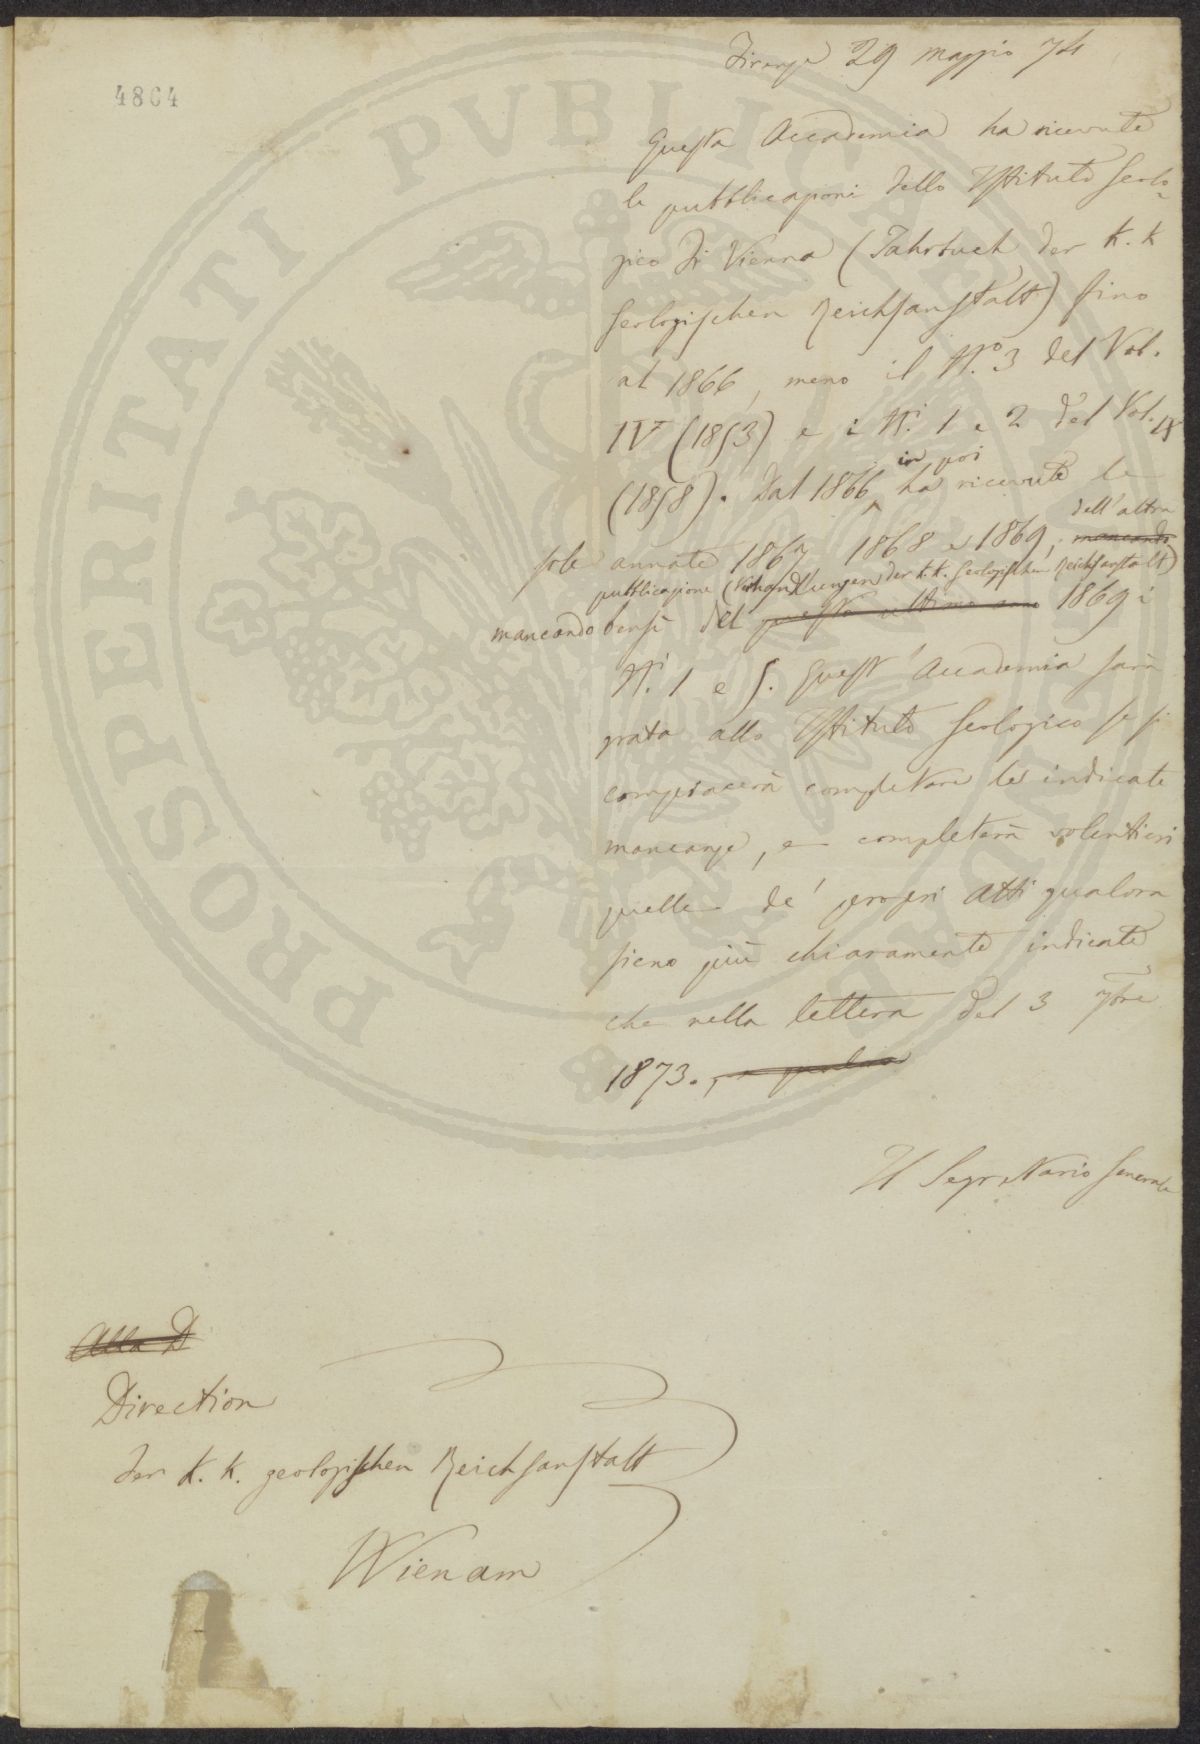 4864
Firenze 29 maggio 74
Questa Accademia ha ricevute
le pubblicazioni dello Istituto Geolo-
gico di Vienna (Jahrbuch der K. K
Geologischen Reichsanstalt) fino
al 1866, meno il N.º 3 del Vol.
IV (1853) e i N.i 1 e 2 del Vol. IX
(1858). Dal 1866 in poi ha ricevute le
sole annate 1867 1868 e 1869, mancando dell'altra
pubblicazione (Verhandlungen der k. k. Geologischen Reichsanstalt)
mancando bensì del questo ultimo anno 1869 i
N.i 1 e 5. Quest'Accademia sarà
grata allo Istituto Geologico se si
compiacerà completare le indicate
mancanze, e completerà volentieri
quelle de' proprj Atti qualora
sieno più chiaramente indicate
che nella lettera del 3 7bre
1873.
Il Segretario Generale
Alla D
Direction
der K. K. geologischen Reichsanstalt
Wienam
PROSPERITATI PVBLICAE